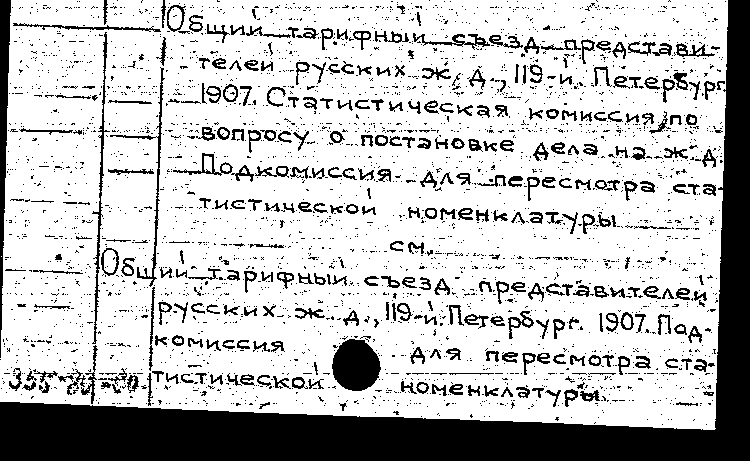 Общий тарифный съезд представи-
телей русских ж. д., 119-й. Петербург.
1907. Статистическая комиссия по
вопросу о постановке дела на ж. д.
Подкомиссия для пересмотра ста-
тистической номенклатуры
см.
Общий тарифный съезд представителей
русских ж. д., 119-й. Петербург. 1907. Под-
комиссия для пересмотра ста-
тистической номенклатуры.